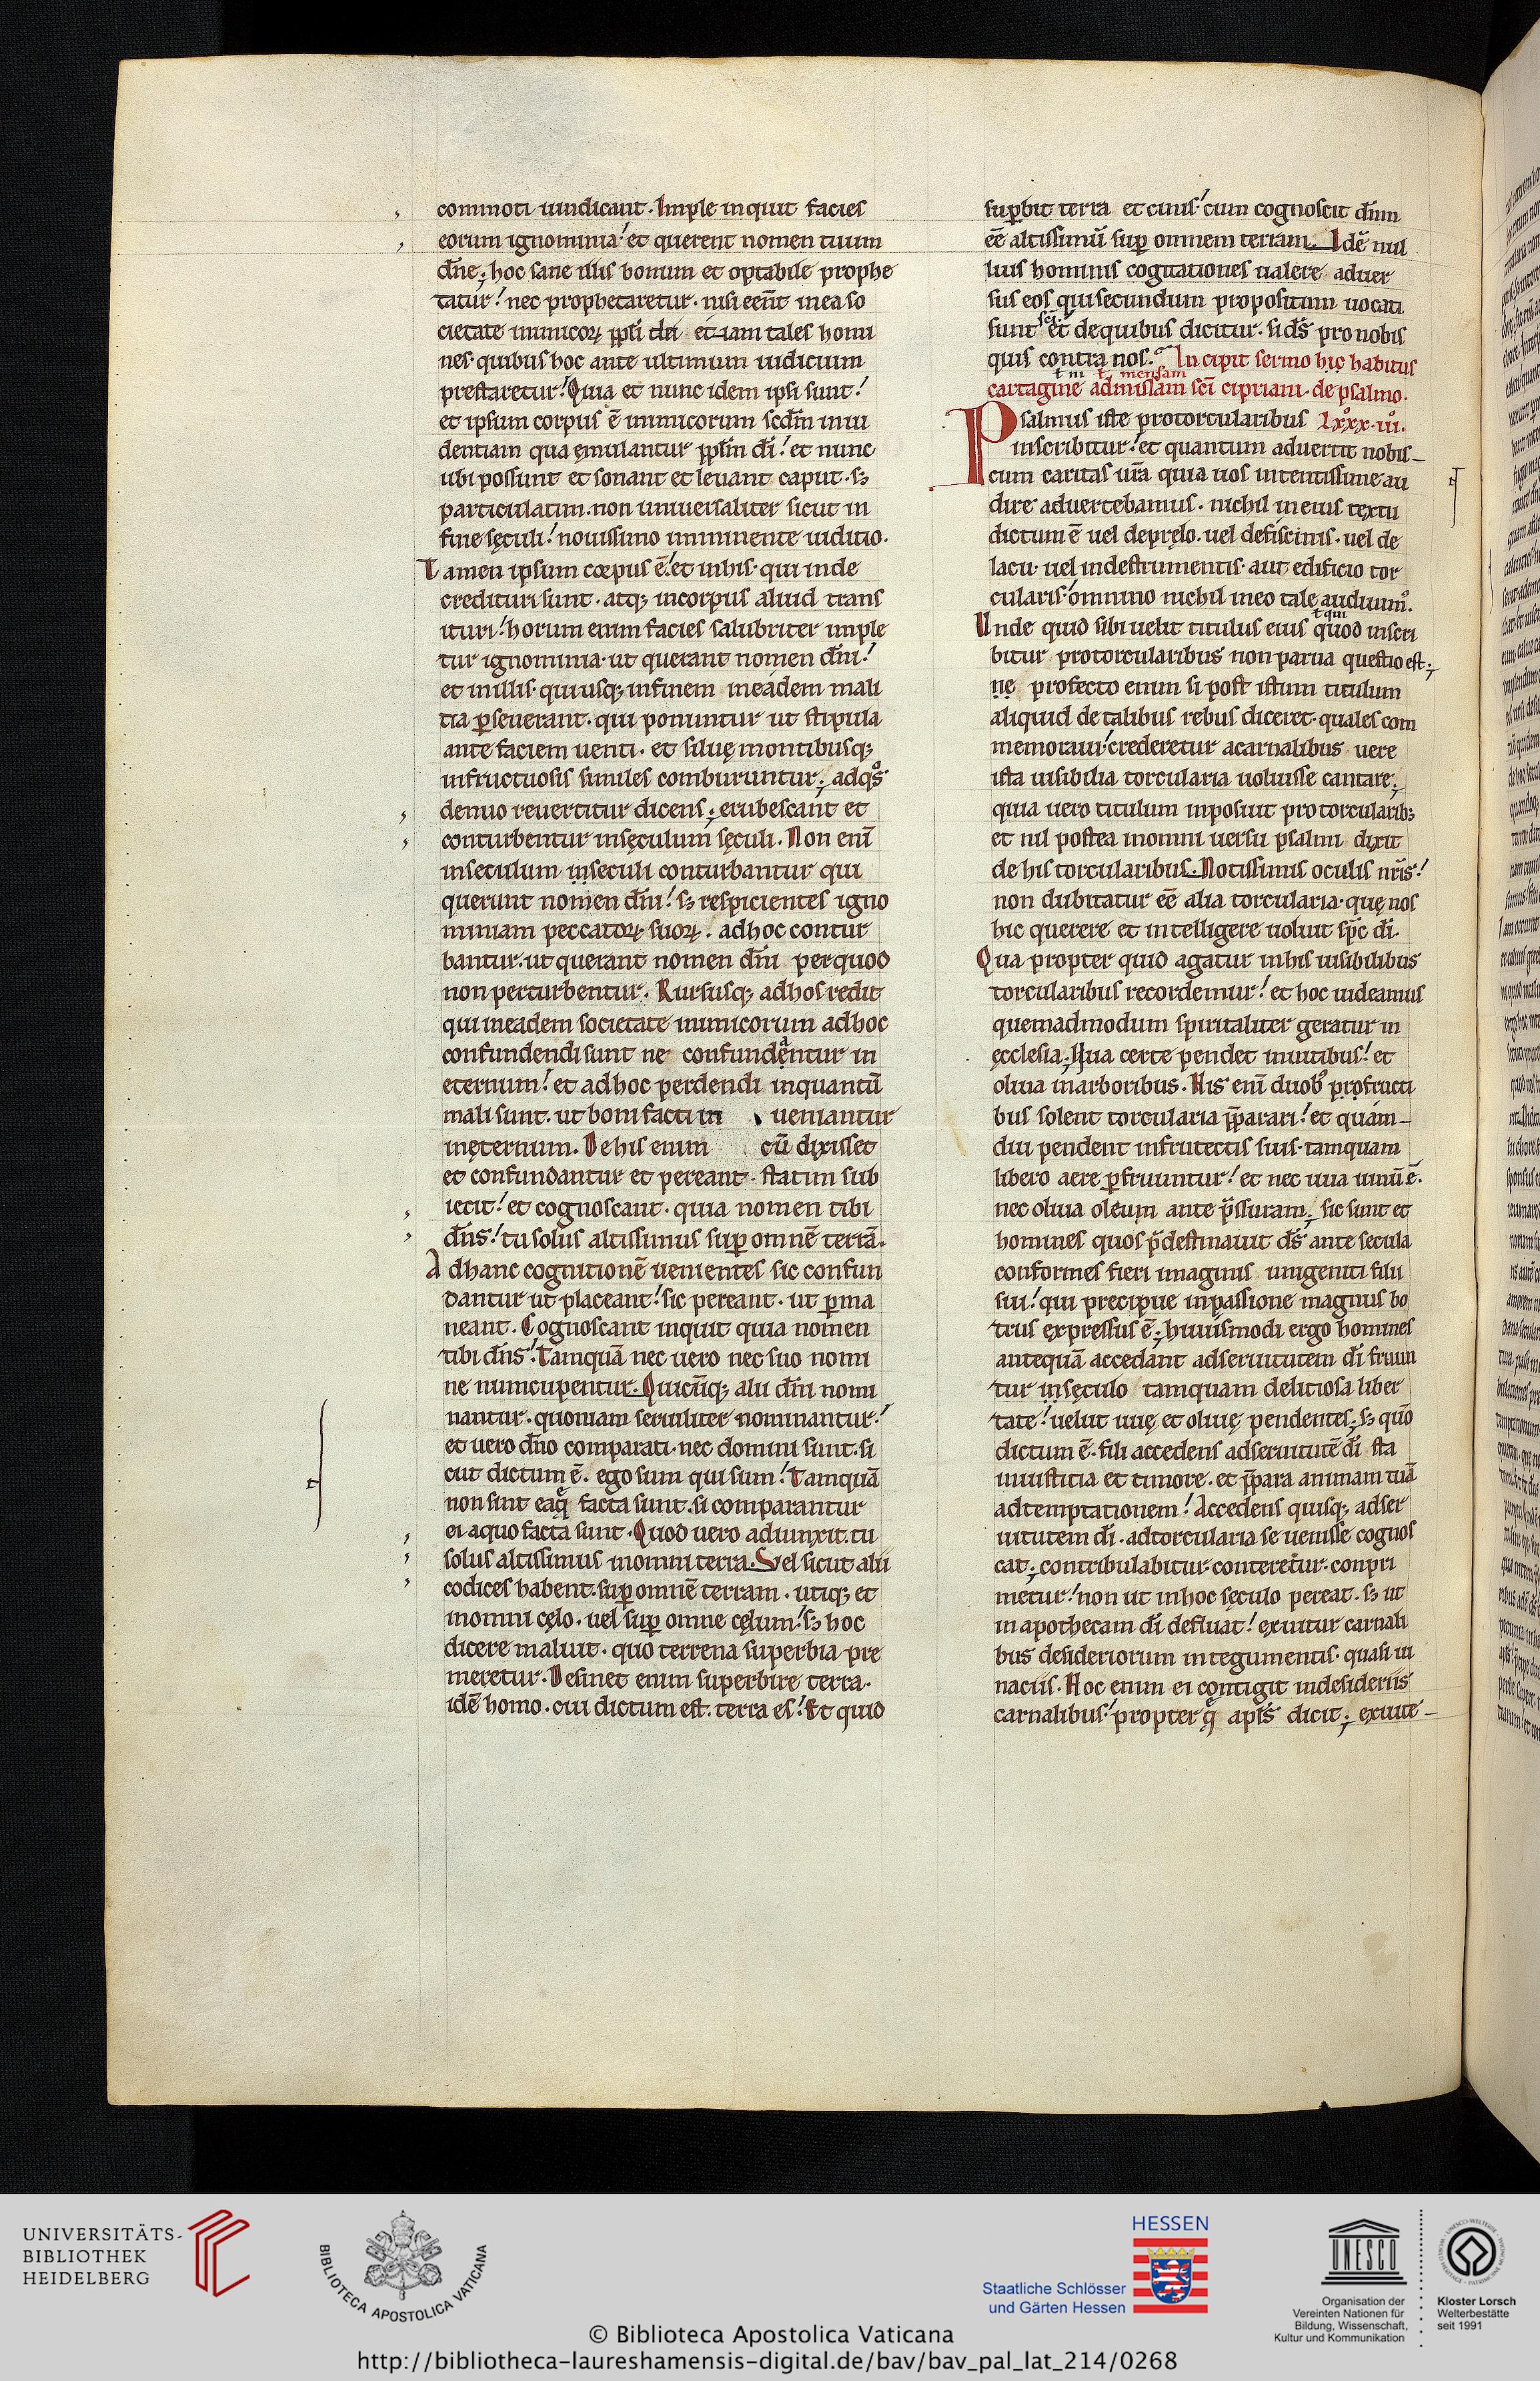 commoti uindicant. Imple inquit facies
eorum ignominia! et querent nomen tuum
dn̄e; hoc sane illis bonum et optabile prophe
tatur! nec prophetaretur. nisi eēnt in ea so
cietate inimicoꝝ pp̄li dei etiam tales homi
nes. quibus hoc ante ultimum iudicium
prestaretur! Quia et nunc idem ipsi sunt!
et ipsum corpus ē inimicorum scd̄m inui
dentiam qua ęmulantur pp̄lm dī! et nunc
ubi possunt et sonant et leuant caput. sꝫ
particulatim. non uniuersaliter sicut in
fine sęculi! nouissimo imminente iuditio.
Tamen ipsum corpus ē! et inhis. qui inde
credituri sunt. atqꝫ incorpus aliud trans
ituri! horum enim facies salubriter imple
tur ignominia. ut querant nomen dn̄i!
et inillis. qui usqꝫ infinem ineadem mali
tia ꝑseuerant. qui ponuntur ut stipula
ante faciem uenti. et siluę montibusqꝫ
infructuosis similes comburuntur; adqºs
denuo reuertitur dicens; erubescant et
conturbentur insęculum sęculi. Non enī
inseculum inseculi conturbantur qui
querunt nomen dn̄i! sꝫ respicientes igno
miniam peccatoꝝ suoꝝ. adhoc contur
bantur. ut querant nomen dn̄i perquod
non perturbentur. Rursusqꝫ adhos redit
qui ineadem societate inimicorum adhoc
confundendi sunt ne confundentur in
eternum! et adhoc perdendi inquantū
mali sunt. ut boni facti in ueniantur
inęternum. De his enim cū dixisset
et confundantur et pereant. statim sub
iecit! et cognoscant. quia nomen tibi
dn̄s! tu solus altissimus suꝑ omnē terrā.
Adhanc cognitionē uenientes sic confun
dantur ut placeant! sic pereant. ut ꝑma
neant. Cognoscant inquit quia nomen
tibi dn̄s! Tamquā nec uero nec suo nomi
ne nuncupentur. Quicūqꝫ alii dn̄i nomi
nantur. quoniam seruiliter nominantur!
et uero dn̄o comparati. nec domini sunt. si
cut dictum ē. ego sum qui sum! Tamquā
non sint eaq̄ facta sunt. si comparantur
ei aquo facta sunt. Quod uero adiunxit. tu
solus altissimus inomni terra. Vel sicut alii
codices habent. suꝑ omnē terram. utiqꝫ et
inomni cęlo. uel suꝑ omne cęlum! sꝫ hoc
dicere maluit. quo terrena superbia pre
meretur. Desinet enim superbire terra.
idē homo. cui dictum est. terra es! Et quid
suꝑbit terra et cinis! cum cognoscit dn̄m
eē altissimū suꝑ omnem terram. Idē nul
lius hominis cogitationes ualere aduer
sus eos qui secundum propositum uocati
sunt sc̄i. et dequibus dicitur. si ds̄ pro nobis
quis contra nos. Incipit sermo hic habitus
ł in ł mensam
cartagine admislam sc̄i cipriani. de psalmo.
Psalmus iste protorcularibus Lxxx.iii.
inscribitur! et quantum aduertit nobis
cum caritas ur̄a quia uos intentissime au
dire aduertebamus. nichil ineius textu
dictum ē uel deprelo. uel defiscinis. uel de
lacu. uel indestrumentis. aut edificio tor
cularis! omnino nichil ineo tale audiuim⁹.
ł qui
Unde quid sibi uelit titulus eius quod inscri
bitur protorcularibus non parua questio est;
ne profecto enim si post istum titulum
aliquid de talibus rebus diceret. quales com
memoraui! crederetur acarnalibus uere
ista uisibilia torcularia uoluisse cantare;
quia uero titulum inposuit protorcularibꝫ
et nil postea inomni uersu psalmi dixit
de his torcularibus. Notissimis oculis nr̄is!
non dubitatur eē alia torcularia. quę nos
hic querere et intelligere uoluit sp̄c dī.
Qua propter quid agatur inhis uisibilibus
torcularibus recordemur! et hoc uideamus
quemadmodum spiritaliter geratur in
ęcclesia; Vua certe pendet inuitibus! et
oliua inarboribus. His enī duob⁹ profructi
bus solent torcularia p̄parari! et quam
diu pendent infrutectis suis. tamquam
libero aere ꝑfruuntur! et nec uua uinū ē.
nec oliua oleum ante p̄ssuram; sic sunt et
homines quos p̄destinauit ds̄ ante secula
conformes fieri imaginis unigeniti filii
sui! qui precipue inpassione magnus bo
trus expressus ē; huiusmodi ergo homines
antequā accedant adseruitutem dī fruun
tur insęculo tamquam delitiosa liber
tate! uelut uuę et oliuę pendentes; sꝫ quō
dictum ē. fili accedens adseruitutē dī sta
iniustitia et timore. et p̄para animam tuā
adtemptationem! Accedens quisqꝫ adser
uitutem dī. adtorcularia se uenisse cognos
cat; contribulabitur. conteretur. conpri
metur! non ut inhoc sęculo pereat. sꝫ ut
in apothecam dī defluat! exuitur carnali
bus desideriorum integumentis. quasi ui
naciis. Hoc enim ei contigit indesideriis
carnalibus! propter q̄ apls̄ dicit; exuite
UNIVERSITÄTS-
BIBLIOTHEK
HEIDELBERG
BIBLIOTECA APOSTOLICA VATICANA
HESSEN
Staatliche Schlösser
und Gärten Hessen
UNESCO
Organisation der
Vereinten Nationen für
Bildung, Wissenschaft,
Kultur und Kommunikation
Kloster Lorsch
Welterbestätte
seit 1991
© Biblioteca Apostolica Vaticana
http://bibliotheca-laureshamensis-digital.de/bav/bav_pal_lat_214/0268